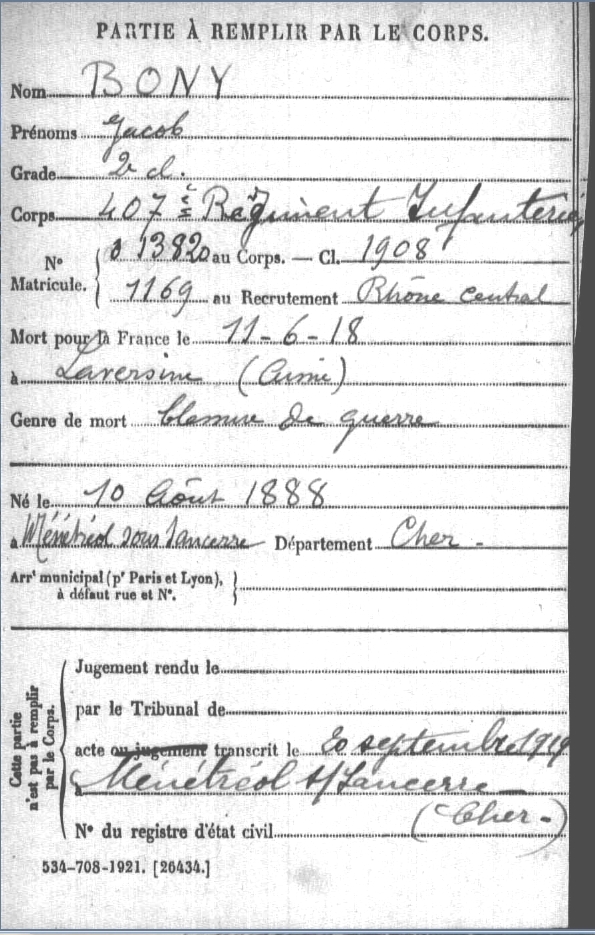 PARTIE À REMPLIR PAR LE CORPS.
Nom BONY
Prénoms Jacob
Grade 2e cl.
Corps 407 ème Régiment Infanterie
N° Matricule. { 13820 au Corps. — Cl. 1908
1169 au Recrutement Rhône Central
Mort pour la France le 11-6-18
à Laversine (Aisne)
Genre de mort blessure de guerre
Né le 10 Août 1888
à Ménétréol sous Sancerre Département Cher -
Arrt municipal (pr Paris et Lyon), }
à défaut rue et N°.
Cette partie n'est pas à remplir par le Corps.
Jugement rendu le
par le Tribunal de
acte ou jugement transcrit le 20 septembre 1919
à Ménétréol s/Sancerre
(Cher-)
N° du registre d'état civil
534-708-1921. [26434.]